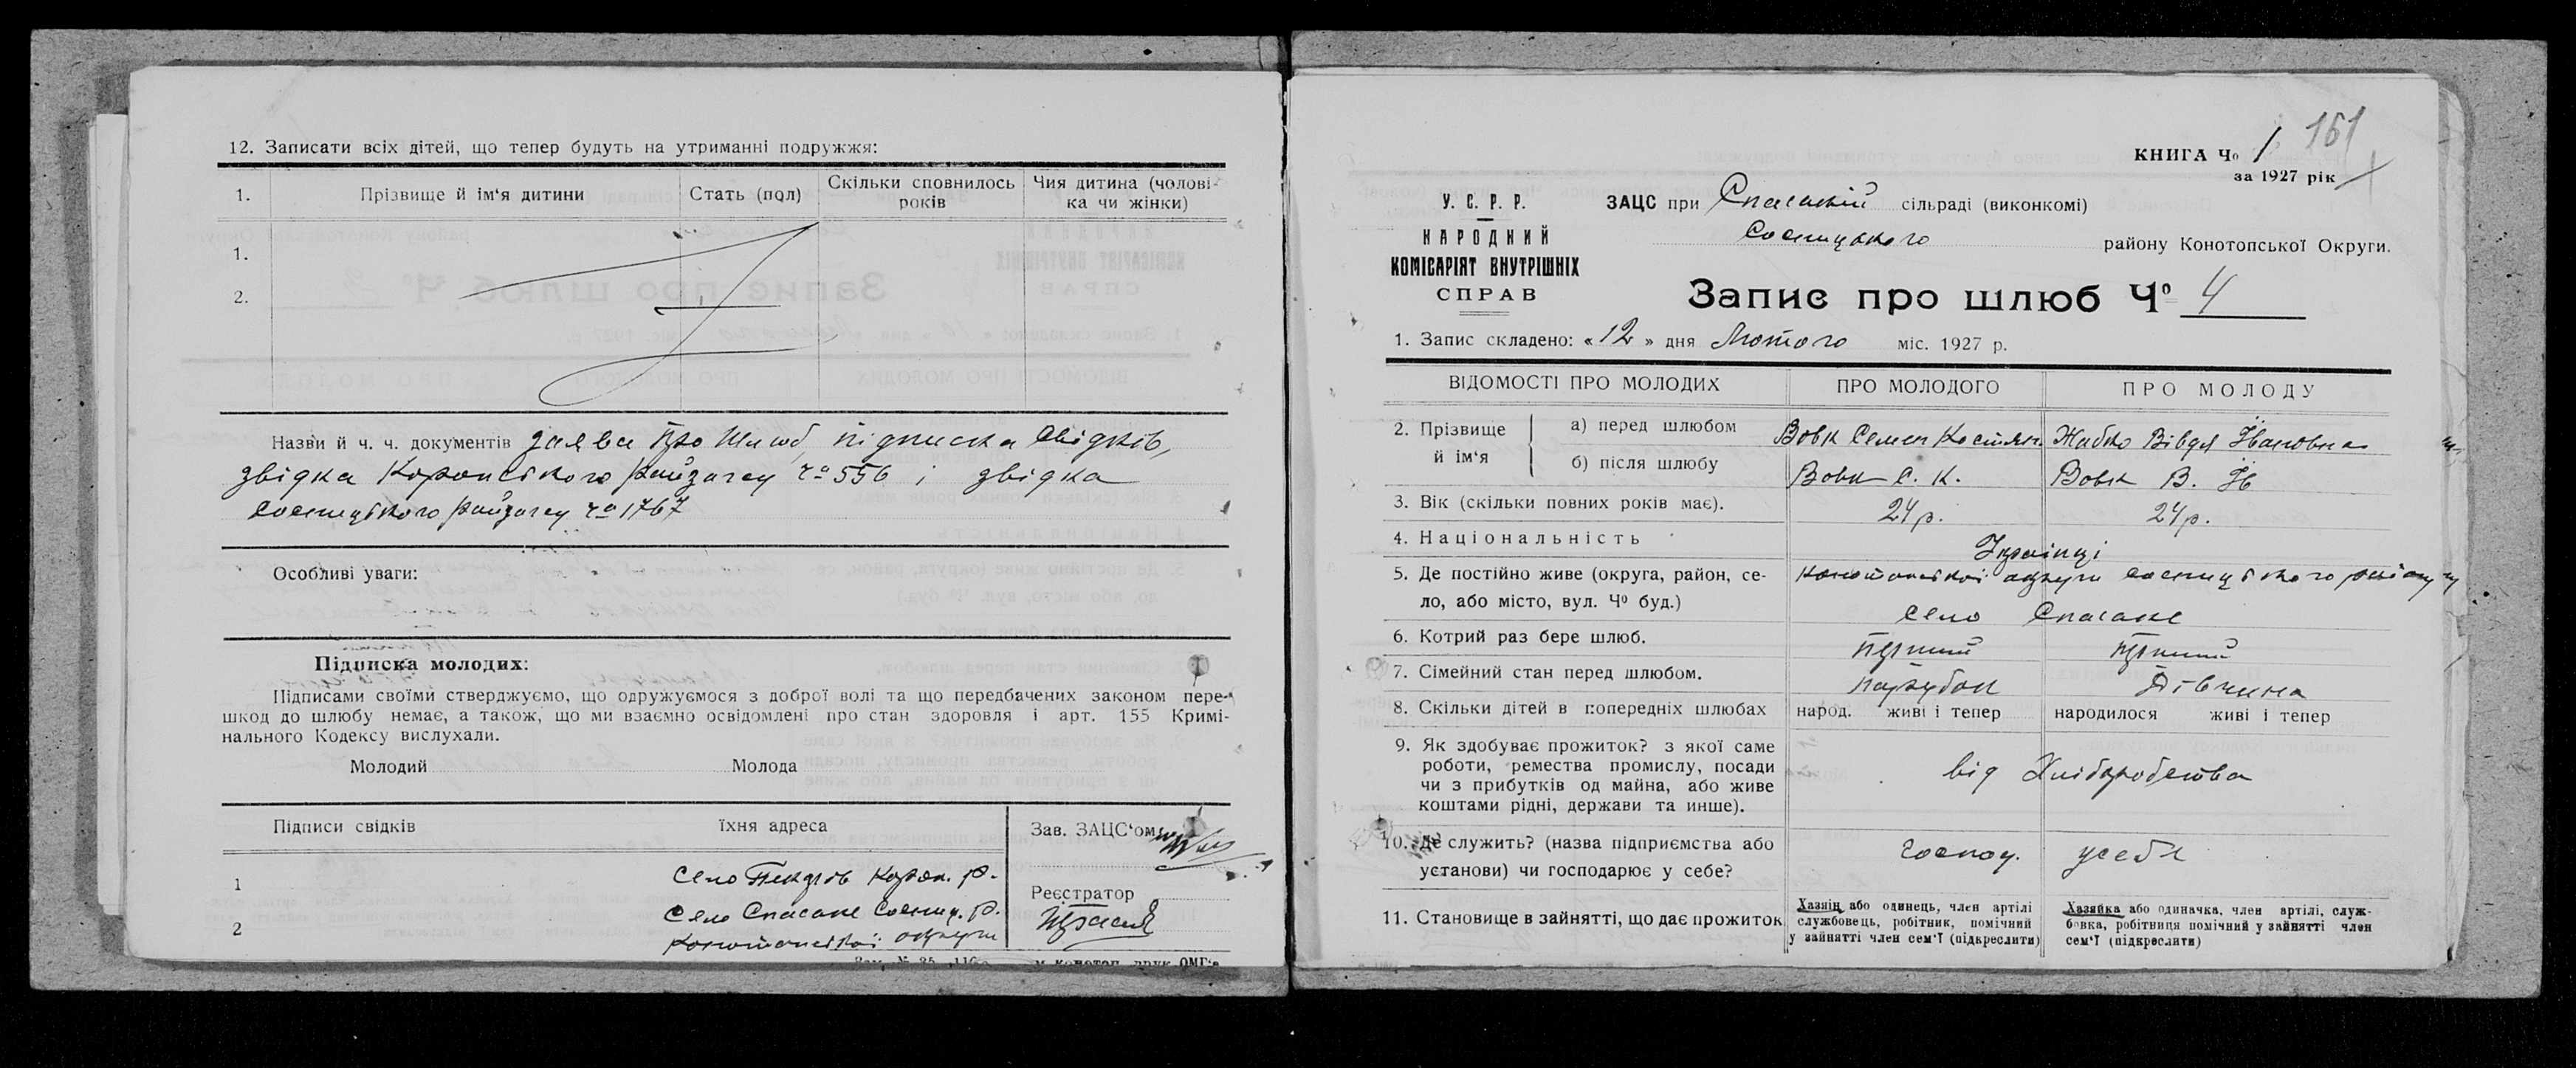 12. Записати всіх дітей, що тепер будуть на утриманні подружжя:
1. Прізвище й ім'я дитини Стать (пол) Скільки сповнилось років Чия дитина (чолові-ка чи жінки)
1.
2.
Назви й ч. ч. документів заява про шлюб, підписка свідків,
звідка Коропського райзагсу чо 556 і звідка
Сосницького райзагсу чо 1767
Особливі уваги:
Підписка молодих:
Підписами своїми стверджуємо, що одружуємося з доброї волі та що передбачених законом пере-
шкод до шлюбу немає, а також, що ми взаємно освідомлені про стан здоровля і арт. 155 Кримі-
нального Кодексу вислухали.
Молодий Молода
Підписи свідків їхня адреса Зав. ЗАЦС'ом
1 село Пекарів Короп. р.
Реєстратор
2 село Спаське Сосниц. р.
Конотопської округи
КНИГА Чо 1 151
за 1927 рік
У. С. Р. Р.
НАРОДНИЙ
КОМІСАРІЯТ ВНУТРІШНІХ
СПРАВ
ЗАЦС при Спаській сільраді (виконкомі)
Сосницького району Конотопської Округи.
Запис про шлюб Чо 4
1. Запис складено: «12» дня Лютого міс. 1927 р.
ВІДОМОСТІ ПРО МОЛОДИХ ПРО МОЛОДОГО ПРО МОЛОДУ
2. Прізвище й ім'я а) перед шлюбом Вовк Семен Костян. Жабко Вівдя Івановна
б) після шлюбу Вовк С. К. Вовк В. Ів
3. Вік (скільки повних років має). 24 р. 24 р.
4. Національність Українці
5. Де постійно живе (округа, район, се- Конотопської округи Сосницького району
ло, або місто, вул. Чо буд.) село Спаське
6. Котрий раз бере шлюб. Перший Перший
7. Сімейний стан перед шлюбом. парубок Дівчина
8. Скільки дітей в попередніх шлюбах народ. живі і тепер народилося живі і тепер
9. Як здобуває прожиток? з якої саме
роботи, ремества промислу, посади від Хліборобства
чи з прибутків од майна, або живе
коштами рідні, держави та инше).
10. Де служить? (назва підприємства або господ. у себе
установи) чи господарює у себе?
11. Становище в зайнятті, що дає прожиток
Хазяїн або одинець, член артілі
службовець, робітник, помічний
у зайнятті член сем'ї (підкреслити)
Хазяйка або одиначка, член артілі, служ-
бовка, робітниця помічний у зайнятті член
сем'ї (підкреслити)